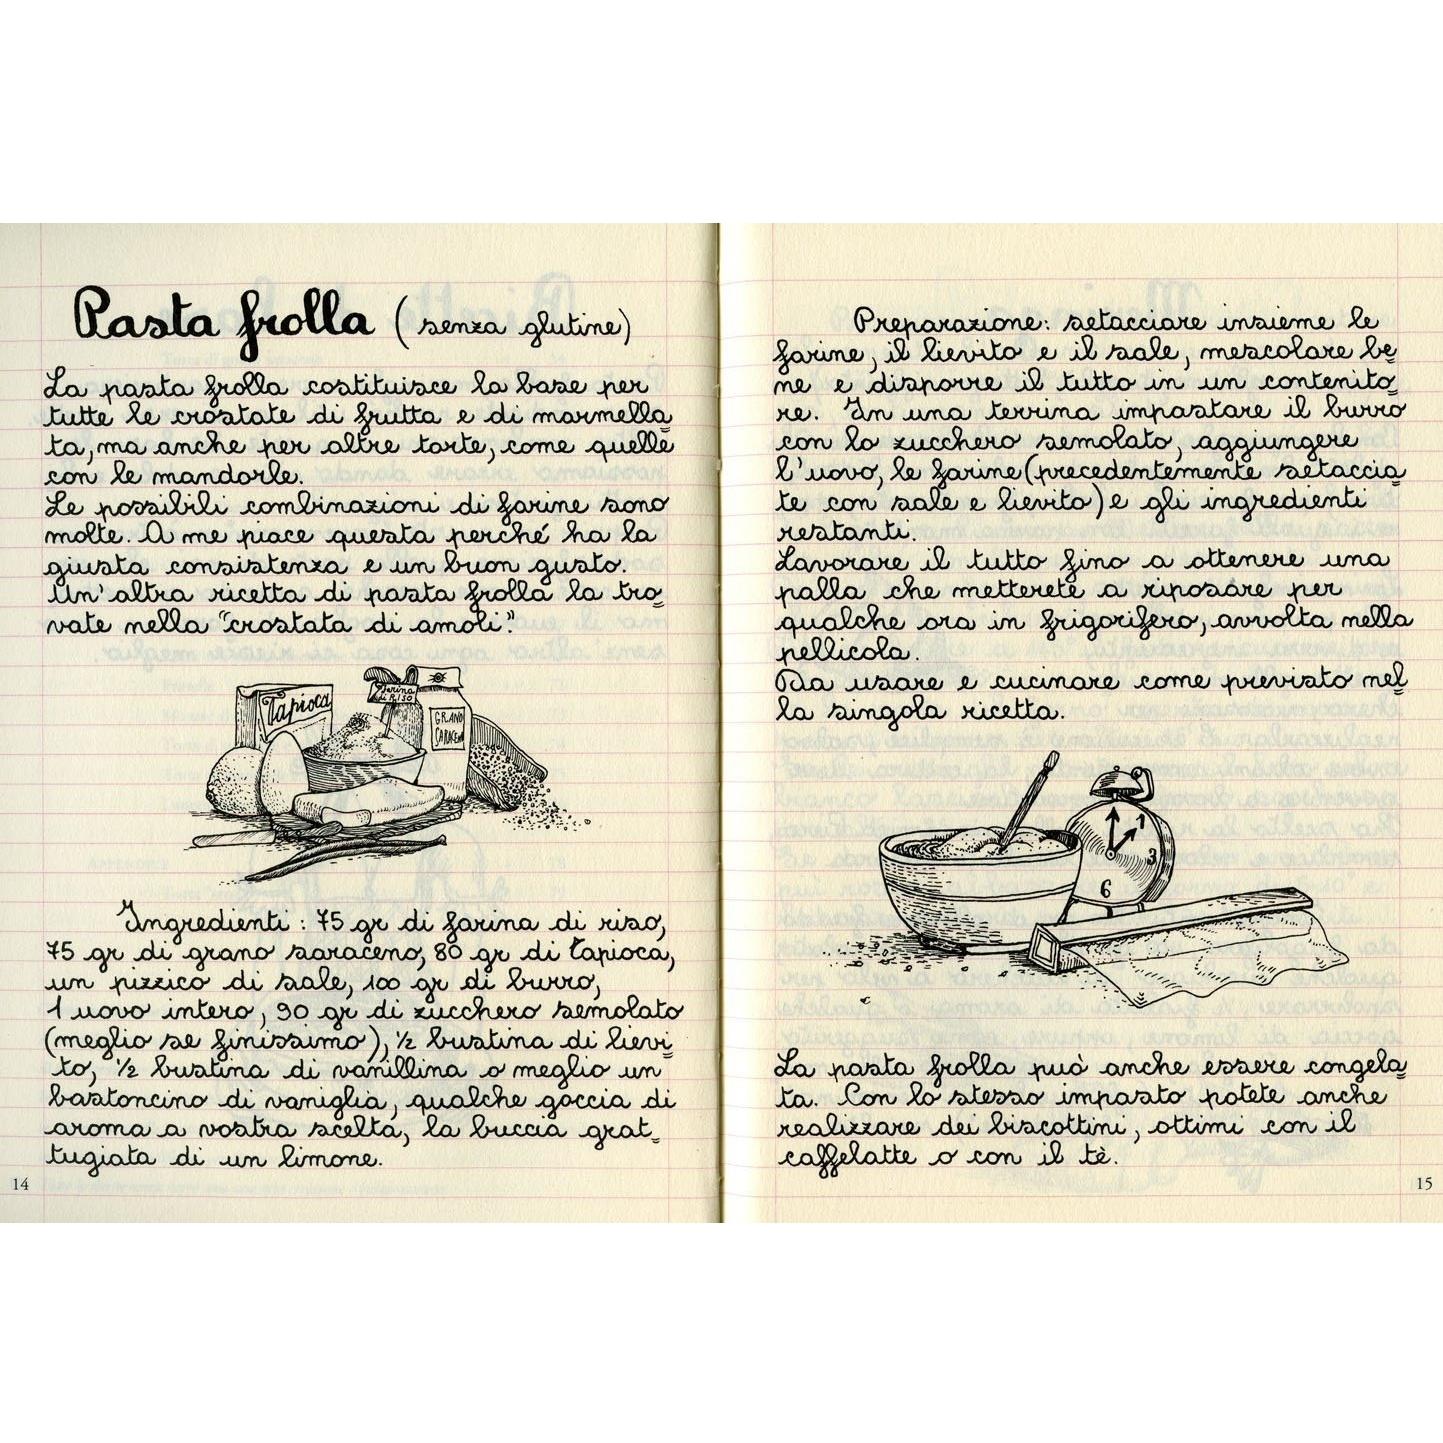 Pasta frolla (senza glutine)
La pasta frolla costituisce la base per
tutte le crostate di frutta e di marmella=
ta, ma anche per altre torte, come quelle
con le mandorle.
Le possibili combinazioni di farine sono
molte. A me piace questa perché ha la
giusta consistenza e un buon gusto.
Un'altra ricetta di pasta frolla la tro=
vate nella "crostata di amoli".
Tapioca
Farina
di RISO
GRANO
SARACENO
Ingredienti: 75 gr di farina di riso,
75 gr di grano saraceno, 80 gr di tapioca,
un pizzico di sale, 100 gr di burro,
1 uovo intero, 90 gr di zucchero semolato
(meglio se finissimo), ½ bustina di lievi=
to, ½ bustina di vanillina o meglio un
bastoncino di vaniglia, qualche goccia di
aroma a vostra scelta, la buccia grat=
tugiata di un limone.
14
Preparazione: setacciare insieme le
farine, il lievito e il sale, mescolare be=
ne e disporre il tutto in un contenito=
re. In una terrina impastare il burro
con lo zucchero semolato, aggiungere
l'uovo, le farine (precedentemente setaccia=
te con sale e lievito) e gli ingredienti
restanti.
Lavorare il tutto fino a ottenere una
palla che metterete a riposare per
qualche ora in frigorifero, avvolta nella
pellicola.
Da usare e cucinare come previsto nel=
la singola ricetta.
1
3
6
La pasta frolla può anche essere congela=
ta. Con lo stesso impasto potete anche
realizzare dei biscottini, ottimi con il
caffelatte o con il tè.
15